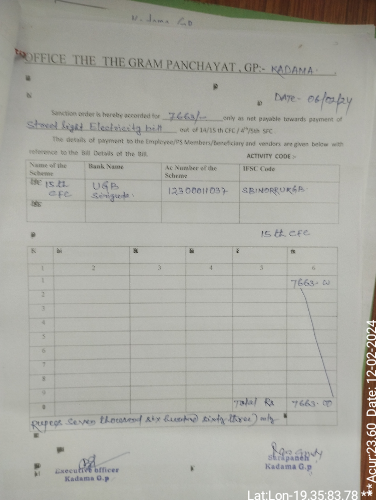 OFFICE THE THE GRAM PANCHAYAT, GP:- KADAMA.
DATE- 06/02/24
Sanction order is hereby accorded for 7663/- only as not payable towards payment of
Street light Electricity bill out of 14/15 th CFC / 4th/5th SFC.
The details of payment to the Employee/PS Members/Beneficiary and vendors are given below with
reference to the Bill Details of the Bill. ACTIVITY CODE :-
Name of the Scheme Bank Name Ac Number of the Scheme IFSC Code
15 th CFC UGB 12300011037
15 th CFC
1 2 3 4 5 6
1 7663-00
2
3
4
5
6
7
8
9 Total Rs 7663-00
Rupees Seven thousand six hundred sixty three) only
Executive officer
Kadama G.p
Sarapanch
Kadama G.p
Lat:Lon-19.35:83.78 ***Acur:23.60 Date: 12-02-2024